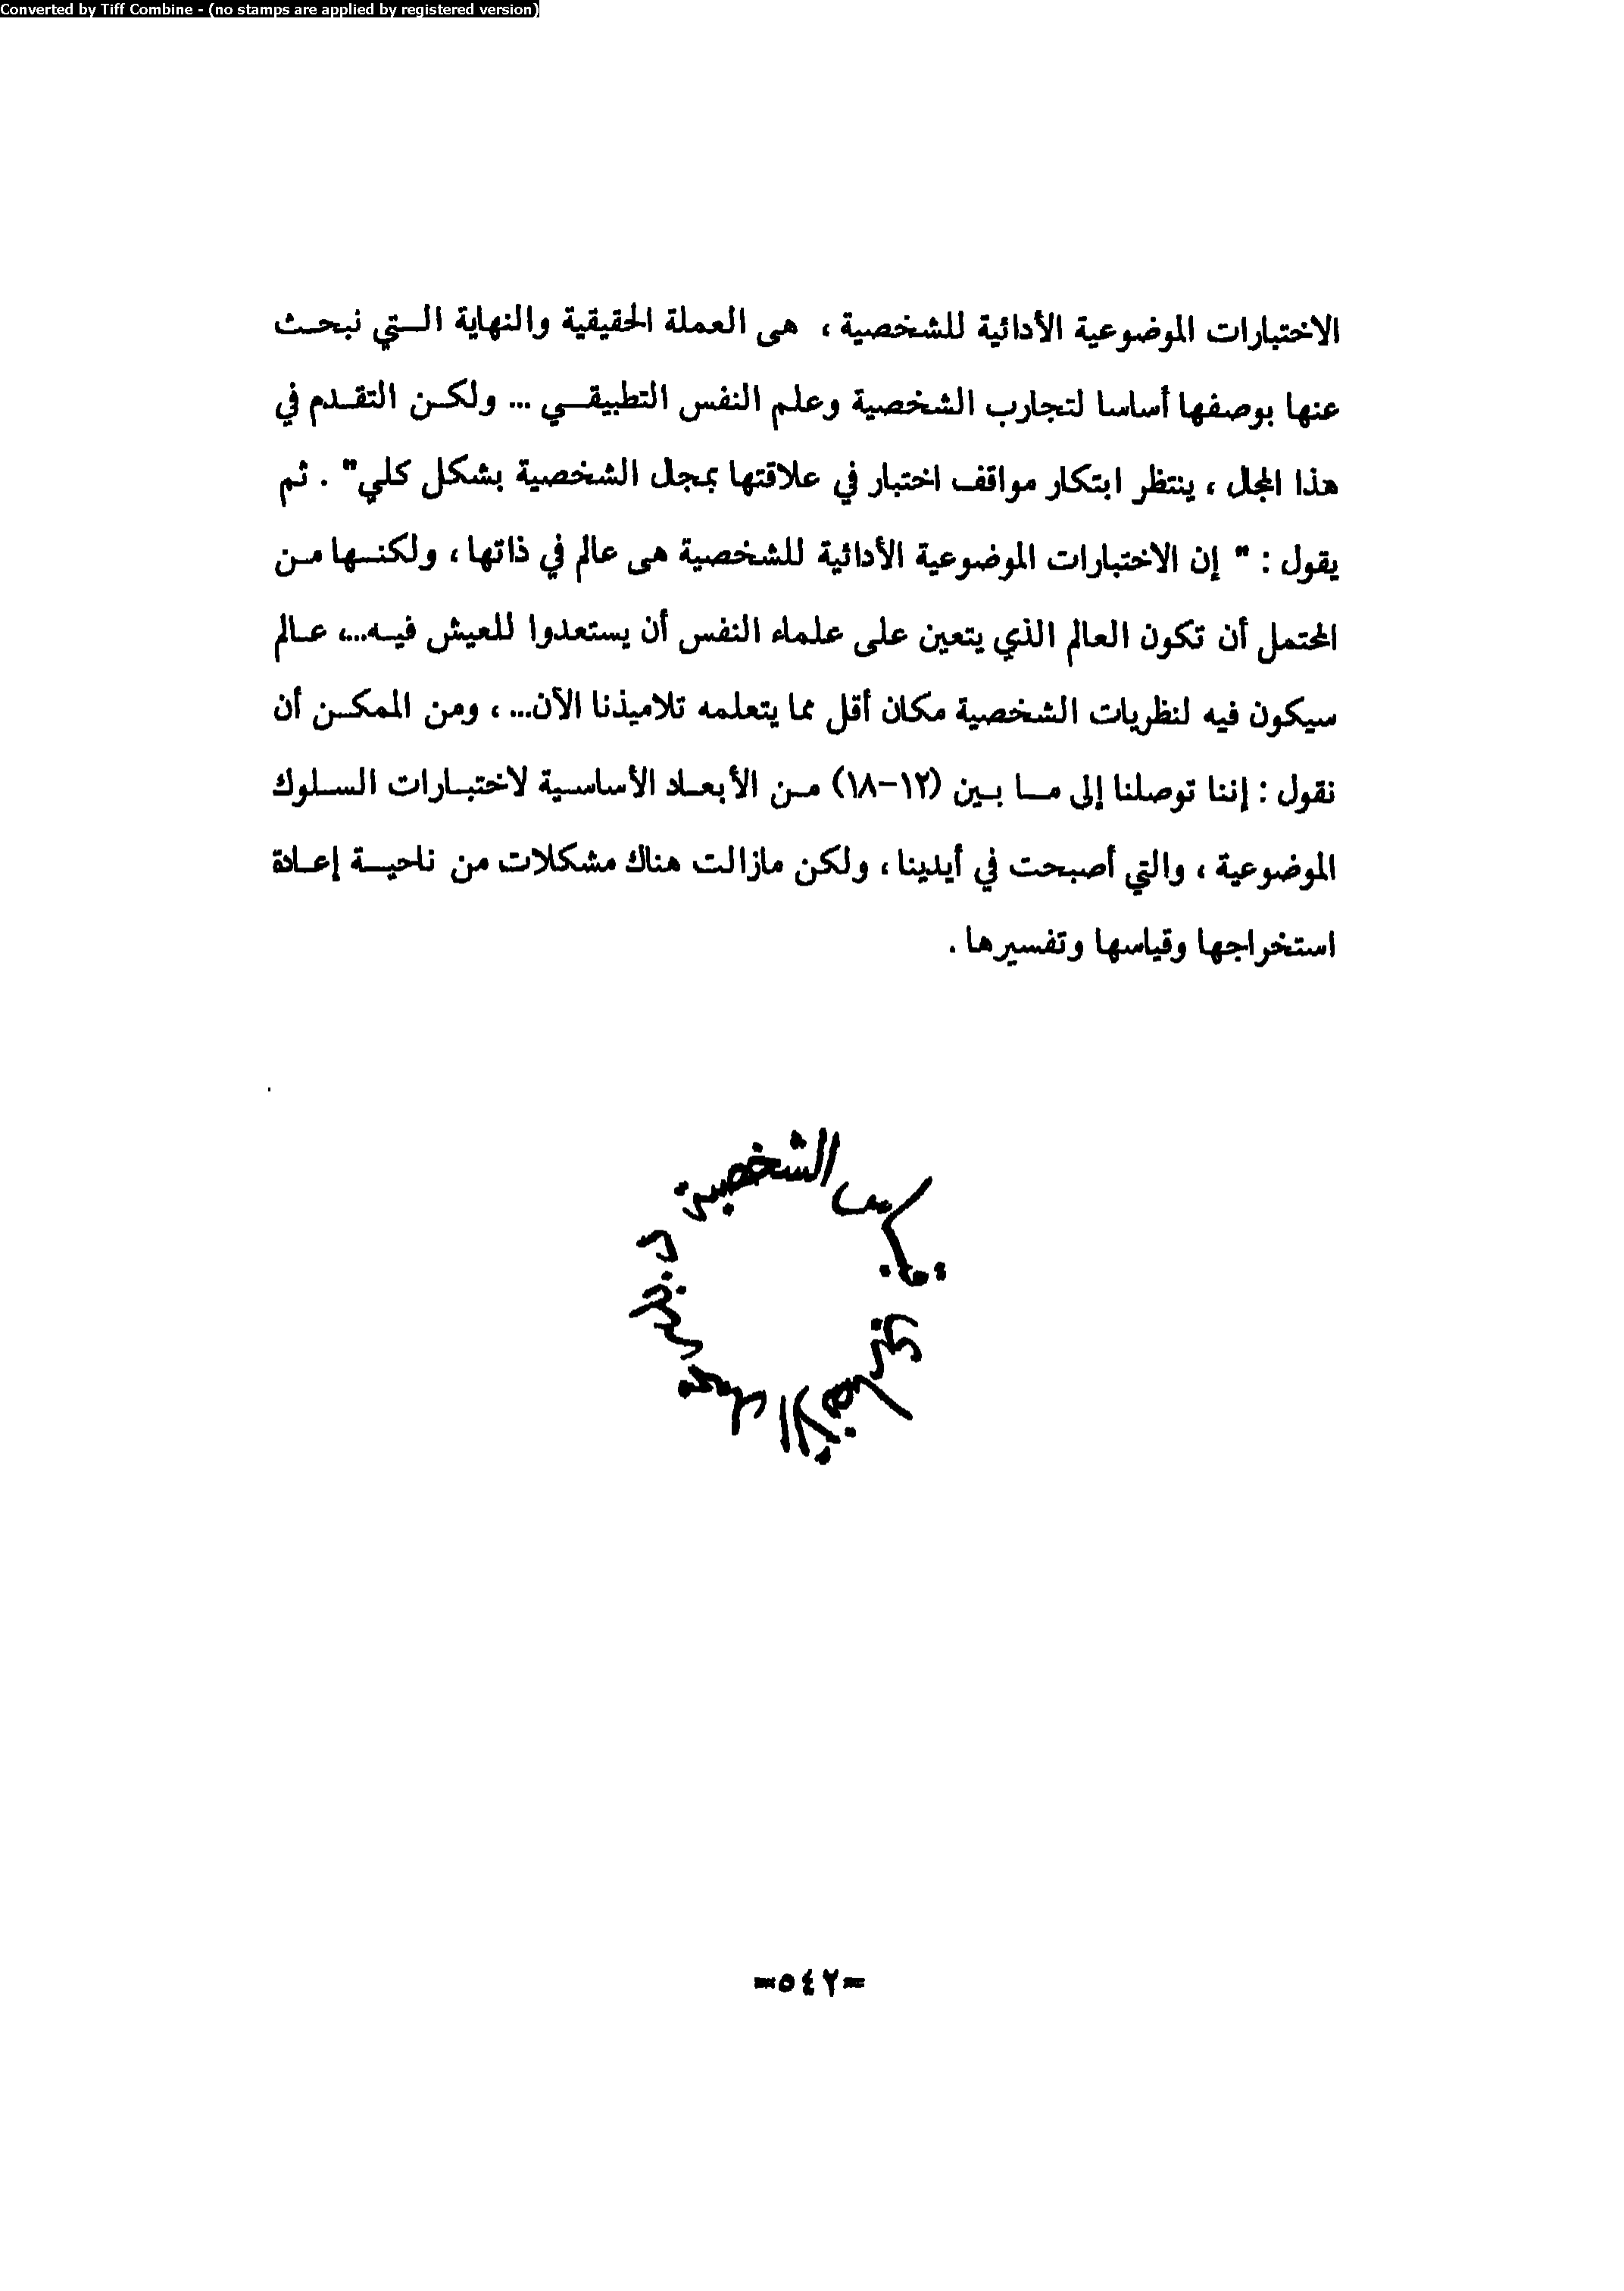 Converted by Tiff Combine - (no stamps are applied by registered version)
الاختبارات الموضوعية الأدائية للشخصية ، هى العملة الحقيقية والنهاية الـتي نبحـث
عنها بوصفها أساسا لتجارب الشخصية وعلم النفس التطبيقـي ... ولكـن التقـدم في
هذا المجال ، ينتظر ابتكار مواقف اختبار في علاقتها بمجال الشخصية بشكل كلي" . ثم
يقول : " إن الاختبارات الموضوعية الأدائية للشخصية هى عالم في ذاتها ، ولكنـها مـن
المحتمل أن تكون العالم الذي يتعين على علماء النفس أن يستعدوا للعيش فيـه...، عـالم
سيكون فيه لنظريات الشخصية مكان أقل مما يتعلمه تلاميذنا الآن... ، ومن الممكـن أن
نقول : إننا توصلنا إلى مـا بـين (١٢-١٨) مـن الأبعـاد الأساسـية لاختبـارات السـلوك
الموضوعية ، والتي أصبحت في أيدينا ، ولكن مازالت هناك مشكلات من ناحيـة إعـادة
استخراجها وقياسها وتفسيرها .
مقاييس الشخصية
د. بدر
الأنصاري
-٥٤٢-